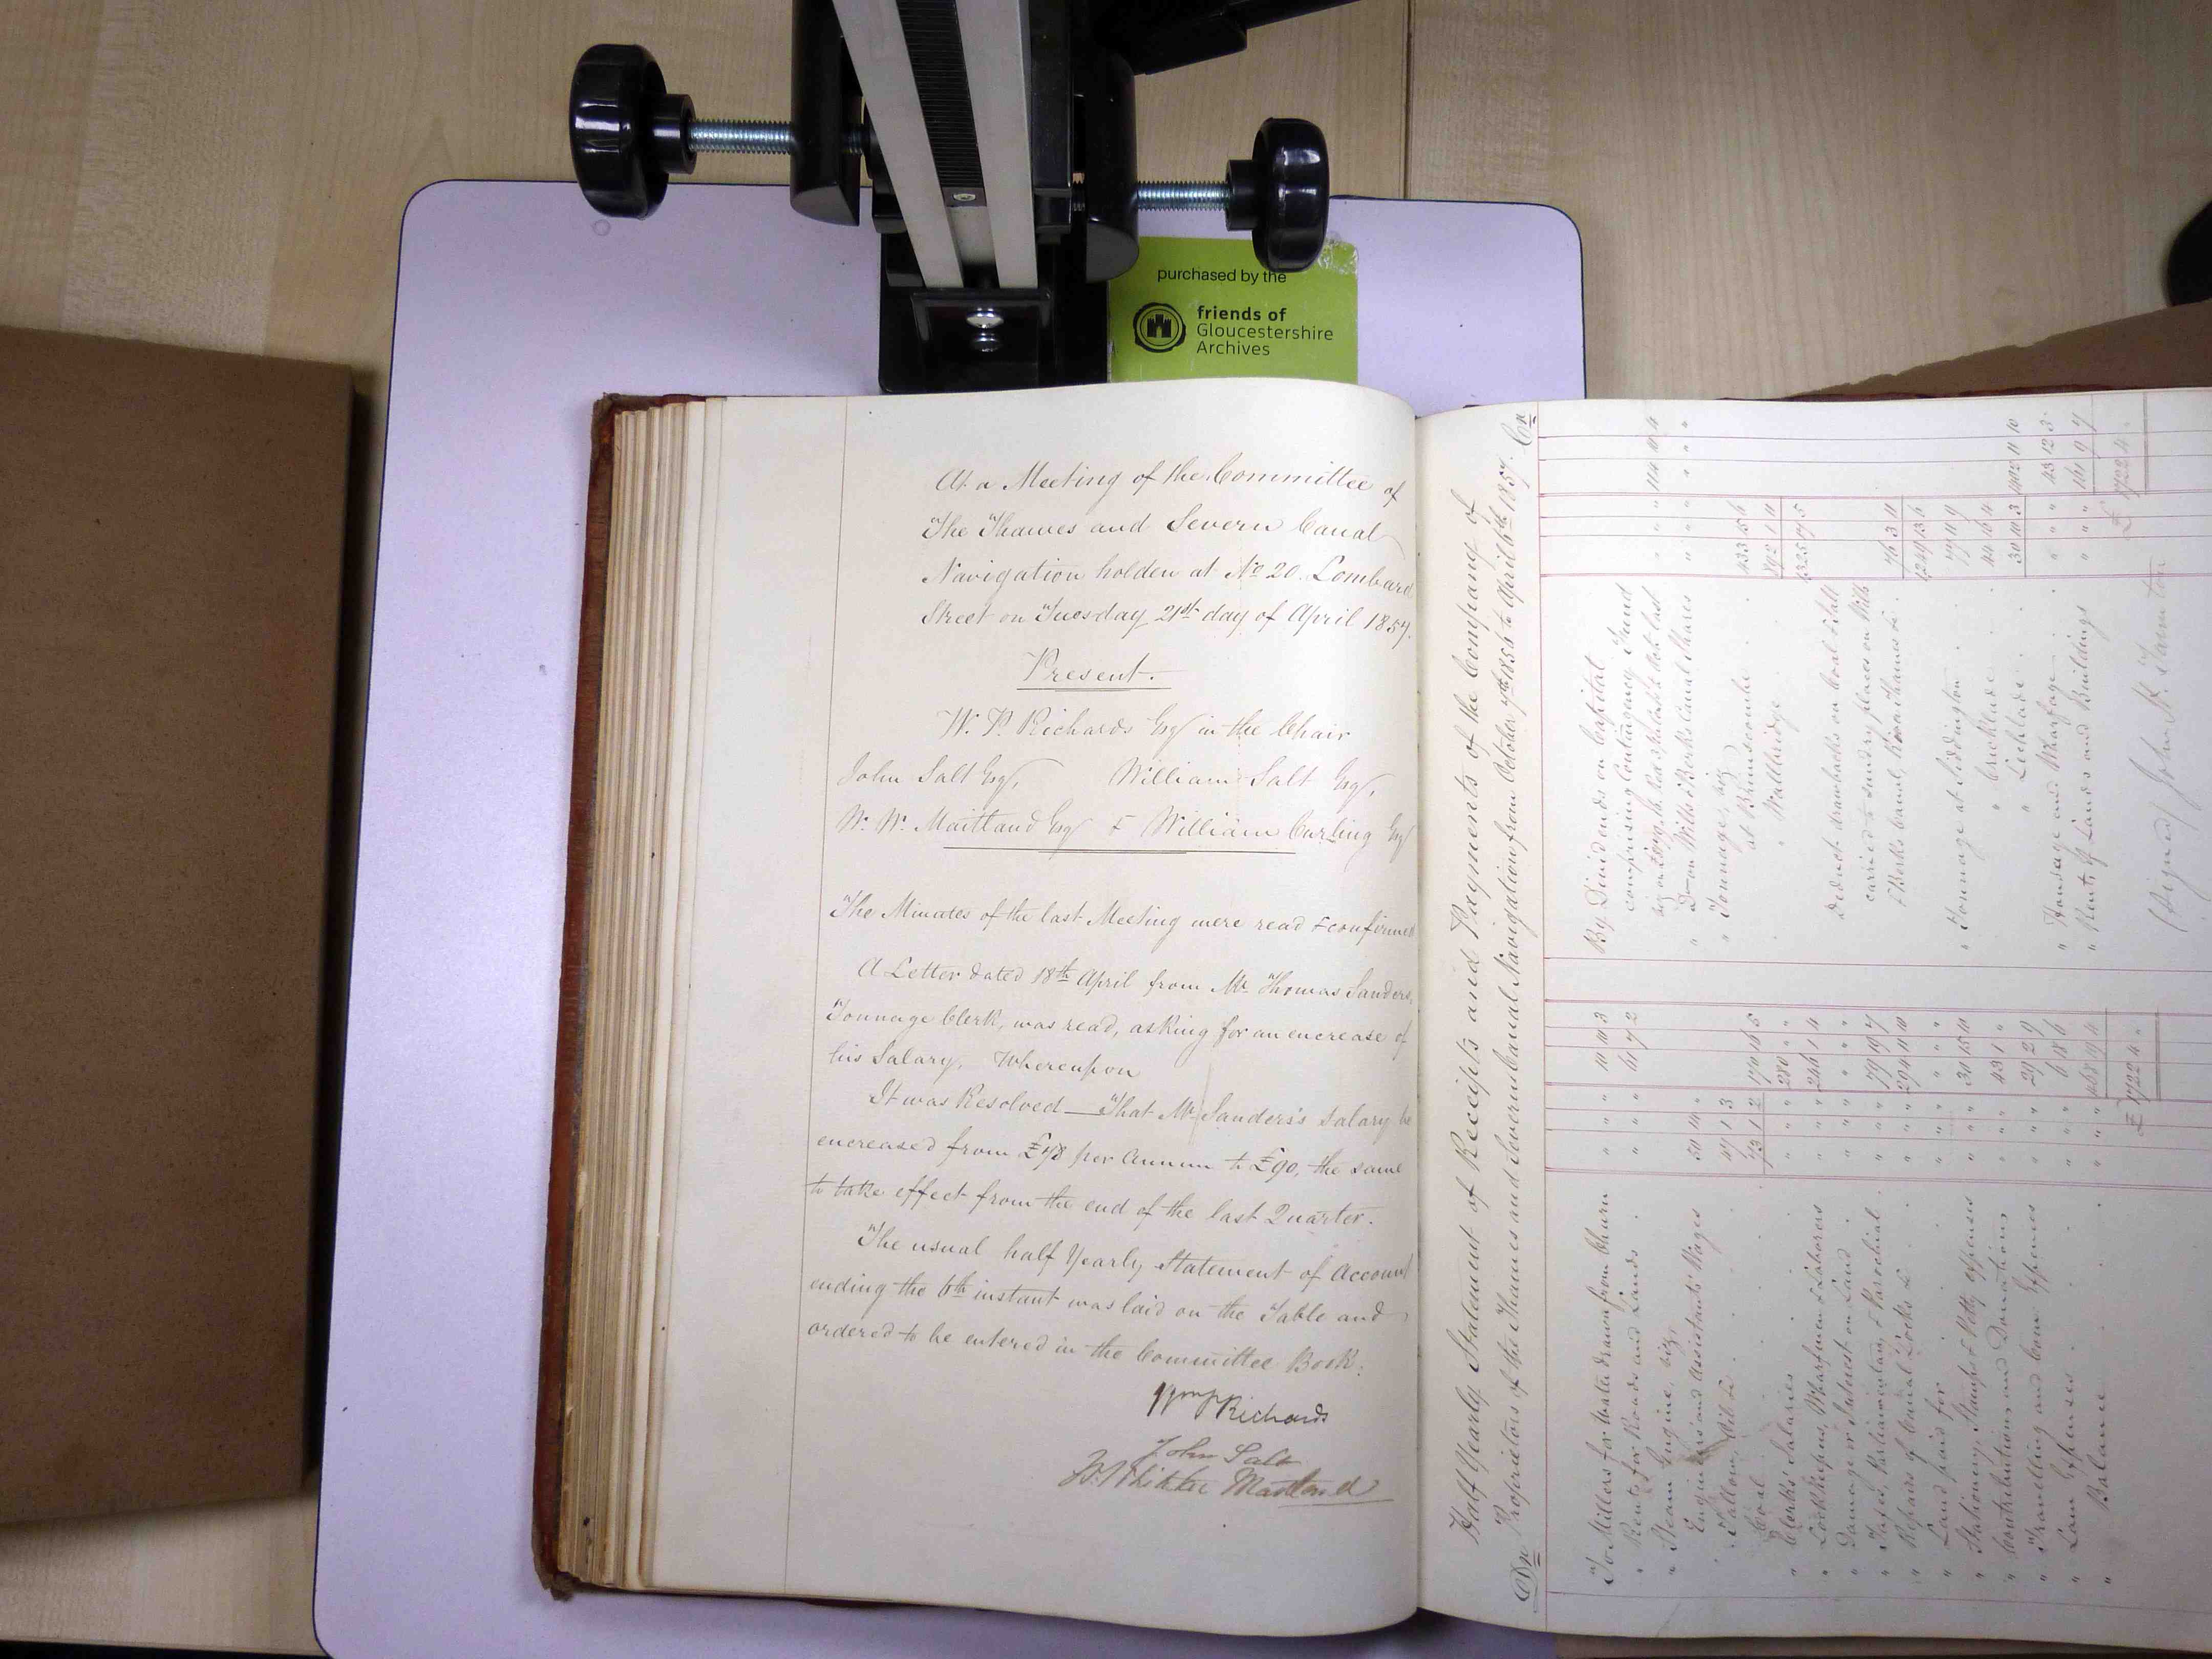 purchased by the
friends of
Gloucestershire
Archives
At a Meeting of the Committee of
The Thames and Severn Canal
Navigation holden at No 20. Lombard
Street on Tuesday 21st day of April 1857.
Present.
W. P. Richards Esq in the Chair
John Salt Esq, William Salt Esq,
W. W. Maitland Esq & William Curling Esq
The Minutes of the last Meeting were read & confirmed
A Letter dated 18th April from Mr Thomas Sanders,
Tonnage Clerk, was read, asking for an encrease of
his Salary. Whereupon
It was Resolved — That Mr Sanders's Salary be
encreased from £78 per Annum to £90, the same
to take effect from the end of the last Quarter.
The usual half Yearly Statement of Account
ending the 6th instant was laid on the Table and
ordered to be entered in the Committee Book.
Wm P Richards
John Salt
W. Whitaker Maitland
Half Yearly Statement of Receipts and Payments of the Company of
Dr Proprietors of the Thames and Severn Canal Navigation from October 7th 1856 to April 6th 1857. Cr
To Millers for Water drawn from Churn " " " 10 10 3
" Rents for Roads and Lands " " " 61 7 2
" Steam Engine, viz,
Engineers and Assistants Wages 50 14 "
Tallow, Oil &c 47 1 3
Coal 73 1 2 170 16 5
" Clerks' Salaries
" Lockkeepers, Wharfmen & Laborers
" Damage or Interest on Land
" Taxes, Parliamentary & Parochial 79 19 7
" Repairs of Canal Locks &c 294 11 10
" Land paid for
" Stationery, Stamps & Petty expenses
" Contributions and Donations 43 1 "
" Travelling and Com: Expences 29 2 9
" Law Expenses
" Balance
£ 1722 4 "
By Dividends on Capital
comprising Contingency Fund
" Do on Wilts & Berks Canal Shares " "
" Tonnage, viz
at Brimscombe
" Wallbridge
Deduct drawbacks on Coal & Salt
carried to sundry places on Wilts
& Berks Canal, River Thames &c. 76 3 11
1249 13 6
" Tonnage at Siddington 77 11 9
" Cricklade 44 16 4
" Lechlade 30 10 3
" Housage and Wharfage " " 43 12 3
" Rents of Lands and Buildings " " 161 9 7
£ 1722 4 "
(Signed) John H. Taunton